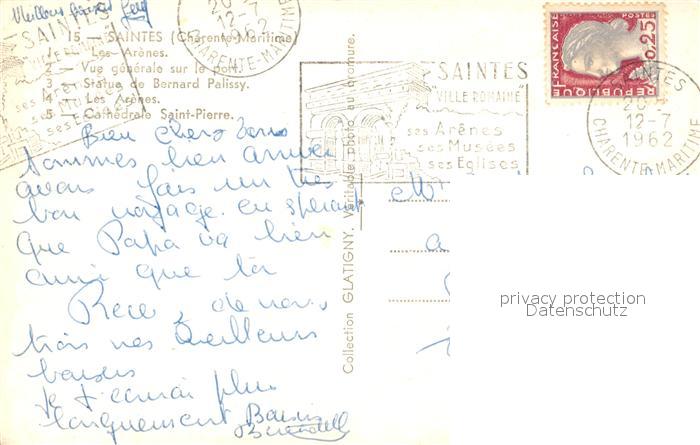 Meilleurs baisers
15 — SAINTES (Charente-Maritime)
1 — Les Arènes.
2 — Vue générale sur le port.
3 — Statue de Bernard Palissy.
4 — Les Arènes.
5 — Cathédrale Saint-Pierre.
Bien chers tous
sommes bien arrivés
avons fais un très
bon voyage. en espérant
que Papa va bien
ainsi que toi
Reçe, de nous
trois nos meilleurs
baisers
je t'écrirai plus
longuement Baisers
Collection GLATIGNY. Véritable photo au bromure.
SAINTES
"VILLE ROMAINE"
ses Arènes
ses Musées
ses Églises
SAINTES
20
12-7
1962
CHARENTE-MARITIME
SAINTES
20
12-7
1962
CHARENTE-MARITIME
REPUBLIQUE FRANÇAISE
POSTES
0,25
Mr
privacy protection
Datenschutz